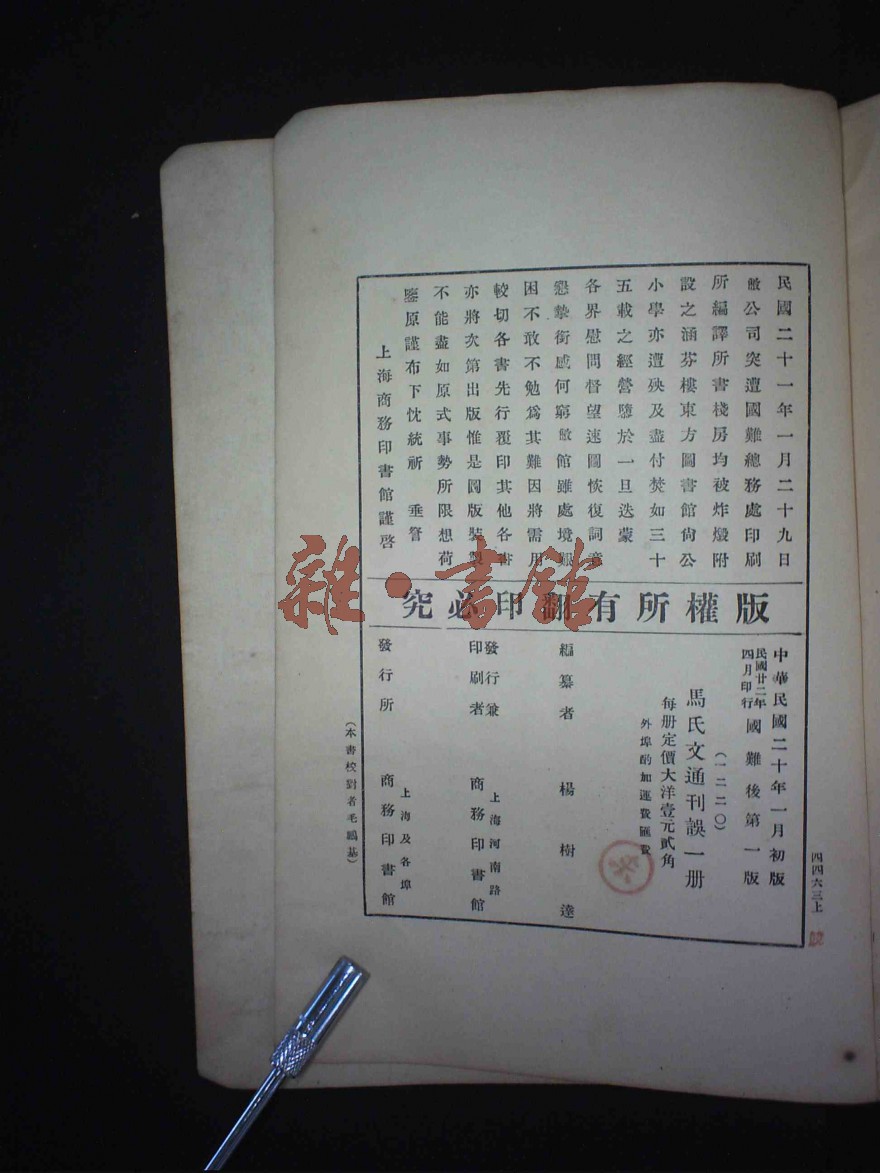 民國二十一年一月二十九日
敝公司突遭國難總務處印刷
所編譯所書棧房均被炸燬附
設之涵芬樓東方圖書館尙公
小學亦遭殃及盡付焚如三十
五載之經營隳於一旦迭蒙
各界慰問督望速圖恢復詞意
懇摯銜感何窮敝館雖處境艱
困不敢不勉爲其難因將需用
較切各書先行覆印其他各書
亦將次第出版惟是圖版裝製
不能盡如原式事勢所限想荷
鑒原謹布下忱統祈 垂詧
上海商務印書館謹啓
版權所有翻印必究
中華民國二十年一月初版
民國廿二年四月印行 國難後第一版
(一二二〇)
馬氏文通刊誤一册
每册定價大洋壹元貳角
外埠酌加運費匯費
編纂者 楊樹達
發行兼印刷者 上海河南路 商務印書館
發行所 上海及各埠 商務印書館
(本書校對者毛鵬基)
四四六三上
雜·書館